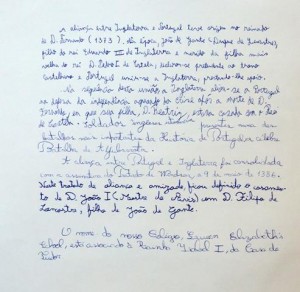 A aliança entre Inglaterra e Portugal teve origem no reinado
de D. Fernando (1373). Na época, João de Gante - Duque de Lencastre,
filho do rei Eduardo III de Inglaterra e marido da filha mais
velha do rei D. Pedro I de Castela, declara-se pretendente ao trono
castelhano e Portugal uniu-se a Inglaterra,
Na sequência desta união a Inglaterra aliou-se a Portugal
na defesa da independência após a morte de D.
Fernando, em que sua filha, D. Beatriz, estava casada com o Rei
de Castela. Soldados ingleses presentes numa das
batalhas mais importantes da História de Portugal, a célebre
Batalha de Aljubarrota.
A aliança entre Portugal e Inglaterra foi consolidada
com a assinatura do Tratado de Windsor, a 9 de maio de 1386.
Neste tratado de aliança e amizade, ficou definido o casamen-
to de D. João I (Mestre de Avis) com D. Filipa de
Lencastre, filha de João de Gante.
O nome do nosso Colégio, Queen Elizabeth's
School, está associado à Rainha Isabel I, da Casa de
Tudor.